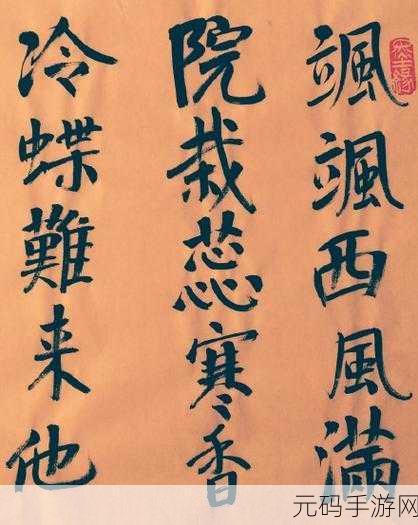 颯颯西風滿
院栽蕊寒香
冷蝶難来他
元码手游网